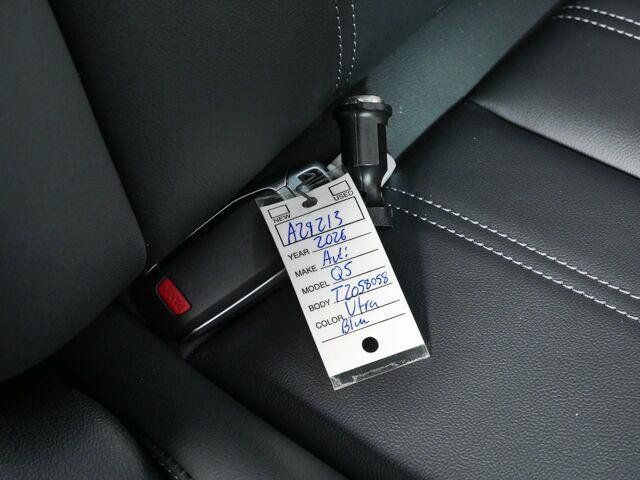 NEW USED
A29213
YEAR 2026
MAKE Audi
MODEL Q5
BODY T2058058
COLOR Utra
Blue